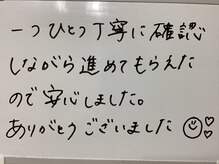 一つひとつ丁寧に確認
しながら進めてもらえた
ので安心しました。
ありがとうございました